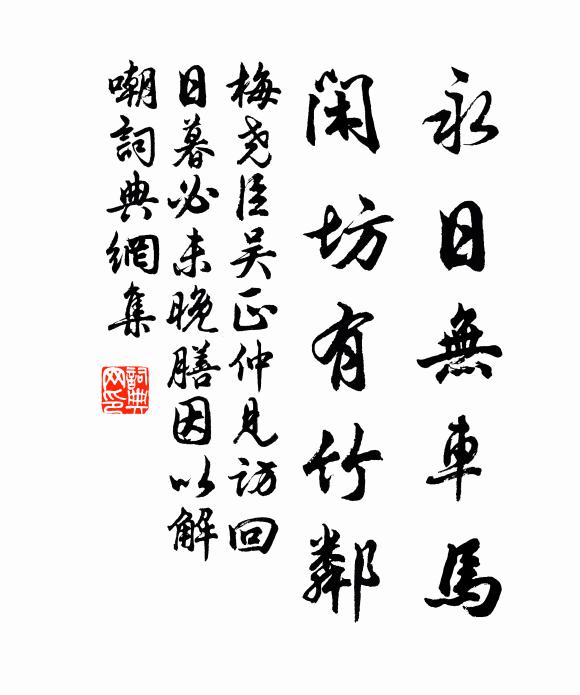 永日無車馬
閑坊有竹鄰
梅堯臣吴正仲見訪回
日暮必未晚膳因以解
嘲詞典網集
詞典
网印